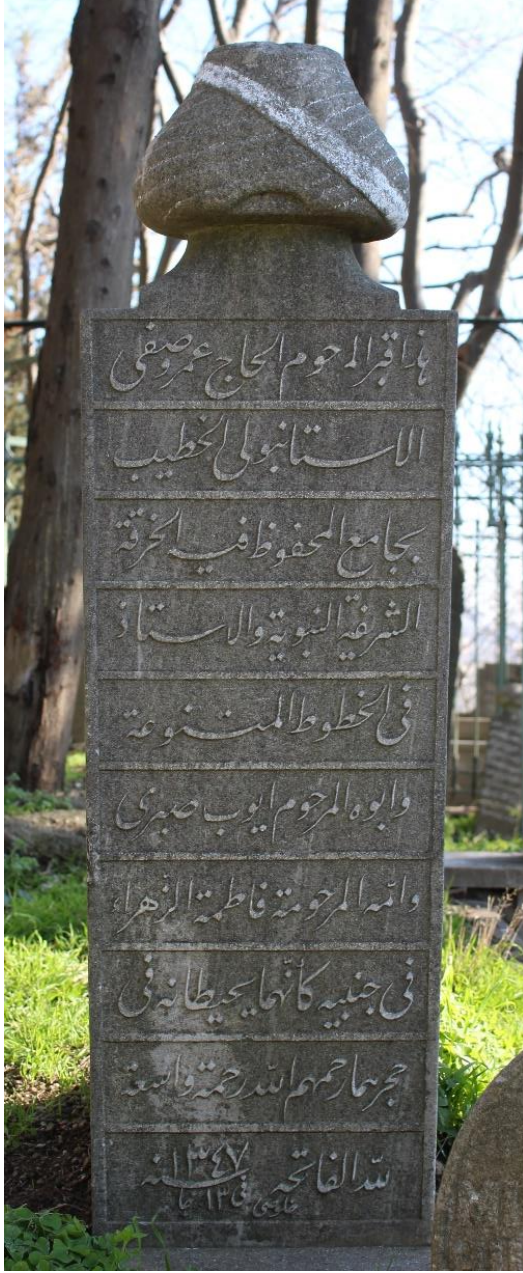 هذا قبر المرحوم الحاج عمر وصفى
الاستانبولى الخطيب
بجامع المحفوظ فيه الخرقة
الشريفة النبوية والاستاذ
فى الخطوط المتنوعة
وابوه المرحوم ايوب صبرى
وامّه المرحومة فاطمة الزّهراء
فى جنبيه كأنّهما يحيطانه فى
حجرهما رحمهم الله رحمة واسعة
لله الفاتحه سنه ١٣٤٧
فى ١٣ جا